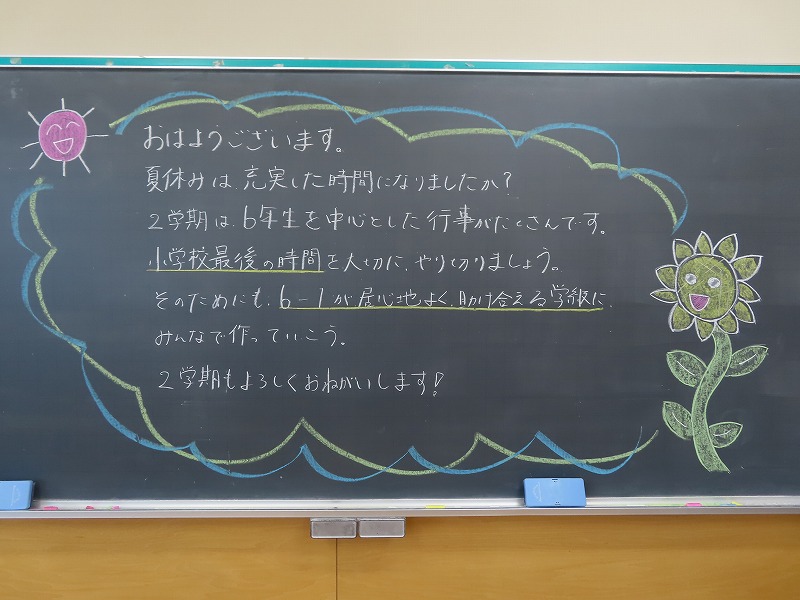 おはようございます。
夏休みは、充実した時間になりましたか?
2学期は、6年生を中心とした行事がたくさんです。
小学校最後の時間を大切に、やり切りましょう。
そのためにも、6-1が居心地よく、助け合える学級に、
みんなで作っていこう。
2学期もよろしくおねがいします!